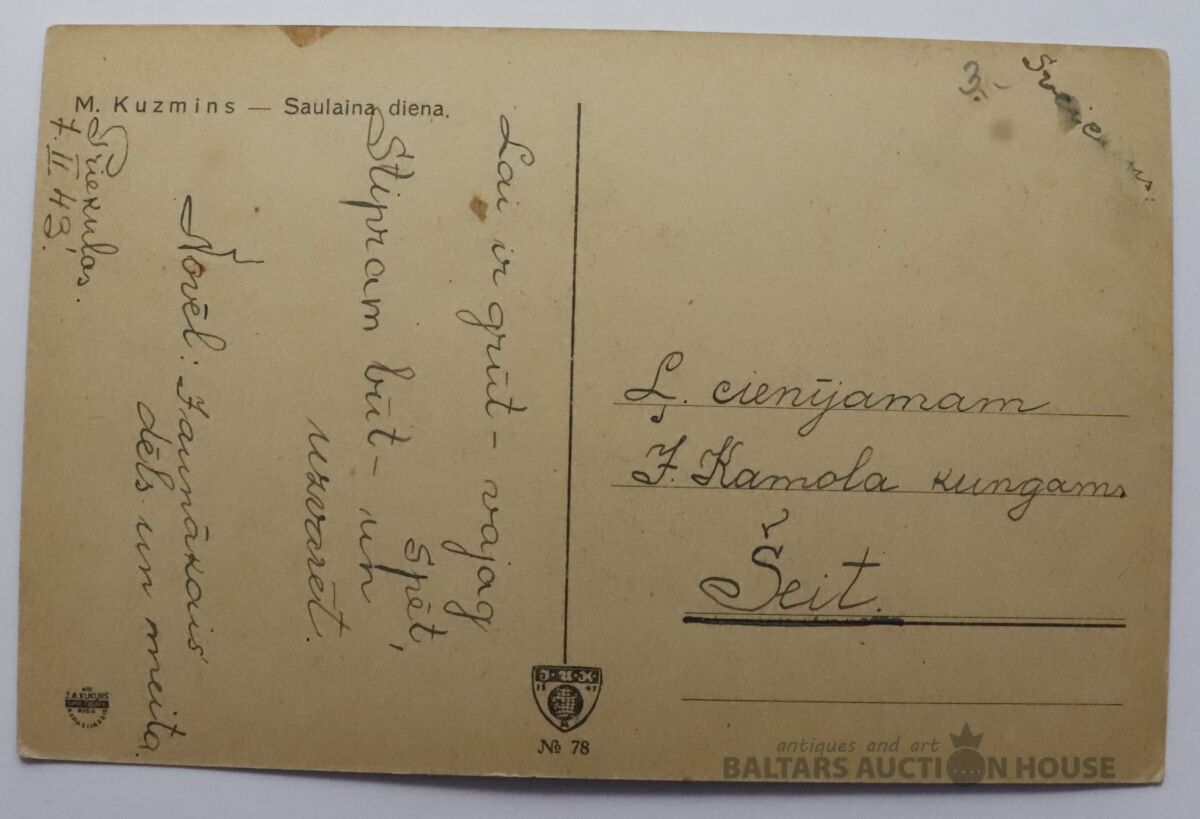 M. Kuzmins — Saulaina diena.
Lai ir grūt - vajag
spēt,
Stipram būt - un
uzvarēt.
Novēl: Jaunākais
dēls un meita.
Priekulos.
7. II. 43.
3.-
Ļ. cienījamam
J. Kamola kungam
Šeit.
J·U·K
18 97
R
№ 78
J.A.KUKURS
RIGA
antiques and art
BALTARS AUCTION HOUSE